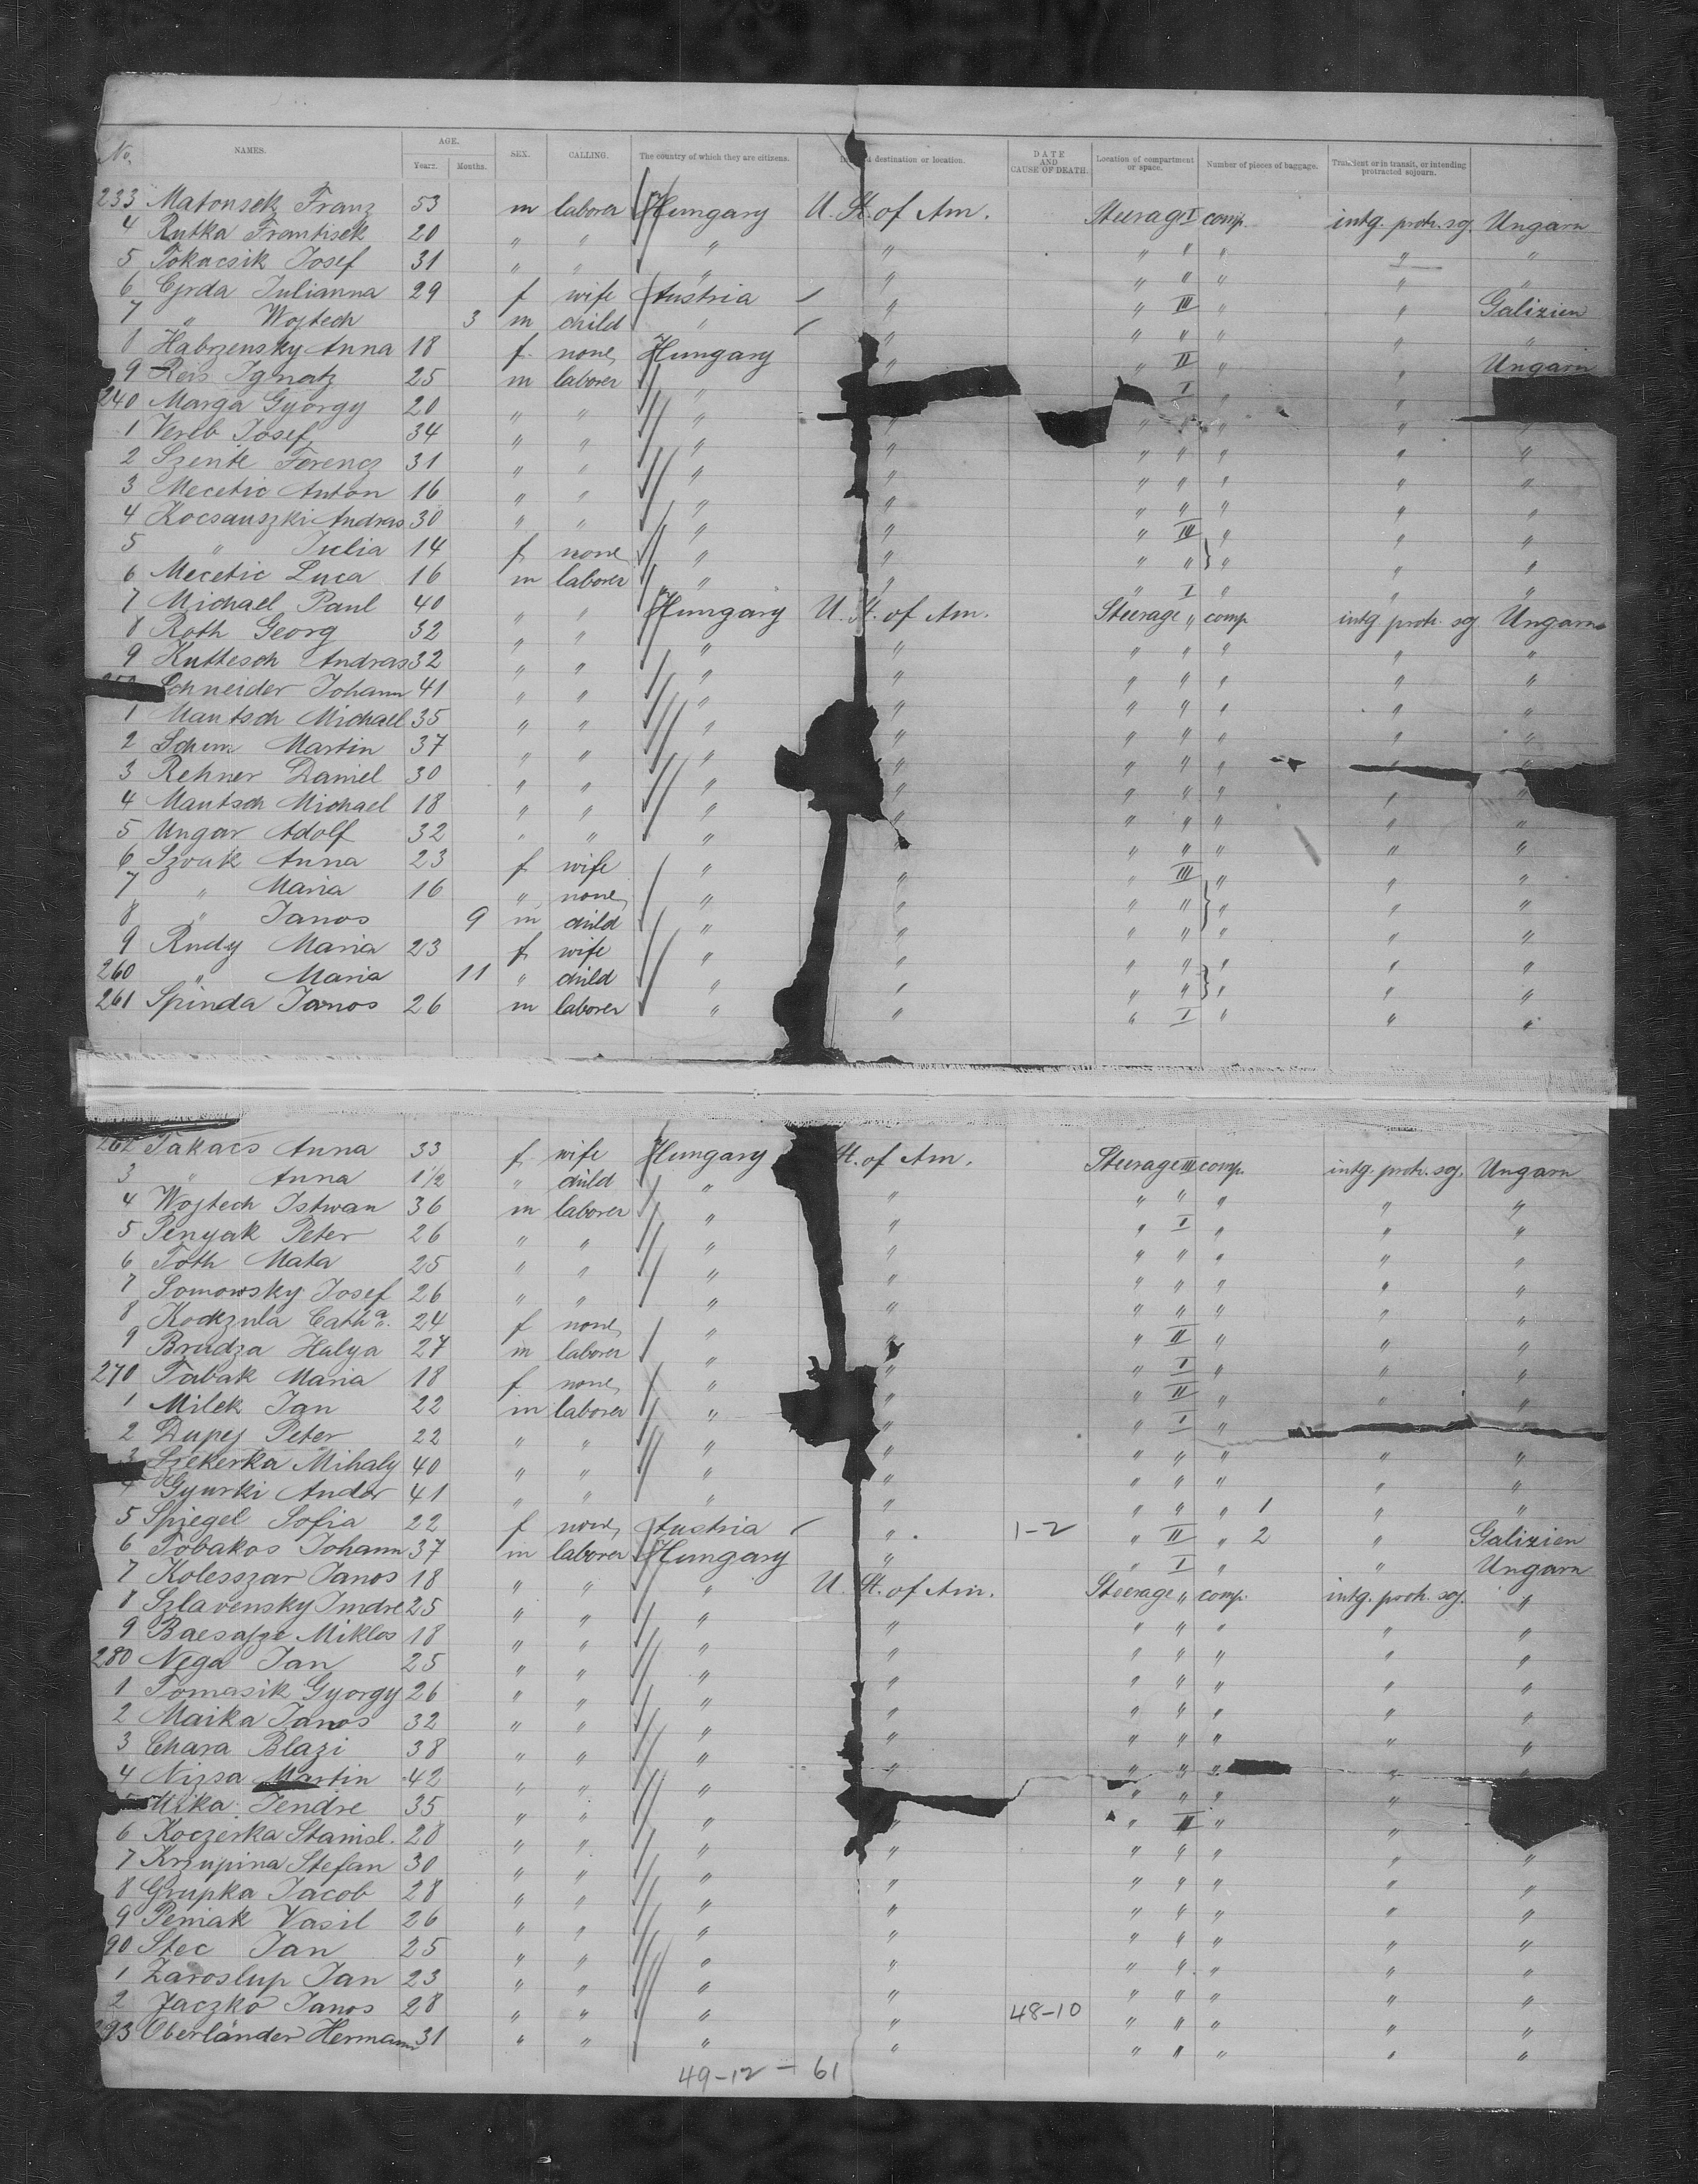 No. NAMES. AGE. Years. Months. SEX. CALLING. The country of which they are citizens. destination or location. DATE AND CAUSE OF DEATH. Location of compartment or space. Number of pieces of baggage. Transient or in transit, or intending protracted sojourn.
233 Matonsek Franz 53 m laborer Hungary U. St. of Am. Steerage I comp. intg. protr. sg. Ungarn
4 Rutka Frantisek 20 " " " " " " " " "
5 Tokacsik Josef 31 " " " " " " " " "
6 Cyrda Julianna 29 f wife Austria " " III " " Galizien
7 " Wojtech 3 m child " " " " " " "
8 Habrzensky Anna 18 f none Hungary " " II " " Ungarn
9 Reis Ignatz 25 m laborer " " I " "
240 Marga György 20 " " " " " " " "
1 Vereb Josef 34 " " " " " " " " "
2 Szente Ferencz 31 " " " " " " " " "
3 Mecetic Anton 16 " " " " " " " " "
4 Kocsauszki Andras 30 " " " " " III " " "
5 " Julia 14 f none " " " " " " "
6 Mecetic Luca 16 m laborer " " " I " " "
7 Michael Paul 40 " " Hungary U. St. of Am. Steerage " comp. intg protr. sg Ungarn
8 Roth Georg 32 " " " " " " " " "
9 Kuttesch Andras 32 " " " " " " " " "
Schneider Johann 41 " " " " " " " " "
1 Mantsch Michael 35 " " " " " " " " "
2 Schum Martin 37 " " " " " " " " "
3 Rehner Daniel 30 " " " " " " " " "
4 Mantsch Michael 18 " " " " " " " " "
5 Ungar Adolf 32 " " " " " " " " "
6 Szvak Anna 23 f wife " " " III " " "
7 " Maria 16 " none " " " " " " "
8 " Janos 9 m child " " " " " " "
9 Rudy Maria 23 f wife " " " " " " "
260 " Maria 11 " child " " " " " " "
261 Spinda Janos 26 m laborer " " " I " " "
262 Takacs Anna 33 f wife Hungary St. of Am. Steerage III comp. intg. protr. sg. Ungarn
3 " Anna 1 1/2 " child " " " " " " "
4 Wojtech Istwan 36 m laborer " " " I " " "
5 Penyak Peter 26 " " " " " " " " "
6 Toth Mata 25 " " " " " " " " "
7 Somowsky Josef 26 " " " " " " " " "
8 Kockzula Catha. 24 f none " " " II " " "
9 Brudza Halya 27 m laborer " " " I " " "
270 Tabak Maria 18 f none " " " II " " "
1 Milek Jan 22 m laborer " " " I "
2 Dupej Peter 22 " " " " " " " " "
3 Szekerka Mihaly 40 " " " " " " " " "
4 Gyurki Andor 41 " " " " " " " 1 " "
5 Spiegel Sofia 22 f none Austria " 1-2 " II " 2 " Galizien
6 Tobakos Johann 37 m laborer Hungary " " I " " Ungarn
7 Kolesszar Janos 18 " " " U. St. of Am. Steerage " comp. intg. protr. sg. "
8 Szlavensky Imdre 25 " " " " " " " " "
9 Miklos 18 " " " " " " " " "
280 Nega Jan 25 " " " " " " " " "
1 Tomasik Gyorgy 26 " " " " " " " " "
2 Maika Janos 32 " " " " " " " " "
3 Chara Blazi 38 " " " " " " " " "
4 Nizsa Martin 42 " " " " " " " "
Mika Jendre 35 " " " " " II " "
6 Koczerka Stanisl. 28 " " " " " " " " "
7 Krzupina Stefan 30 " " " " " " " " "
8 Grupka Jacob 28 " " " " " " " " "
9 Peniak Vasil 26 " " " " " " " " "
90 Stec Jan 25 " " " " " " " " "
1 Zaroslup Jan 23 " " " " " " " " "
2 Jaczko Janos 28 " " " " 48-10 " " " " "
293 Oberländer Hermann 31 " " " " " " " " "
49-12 - 61